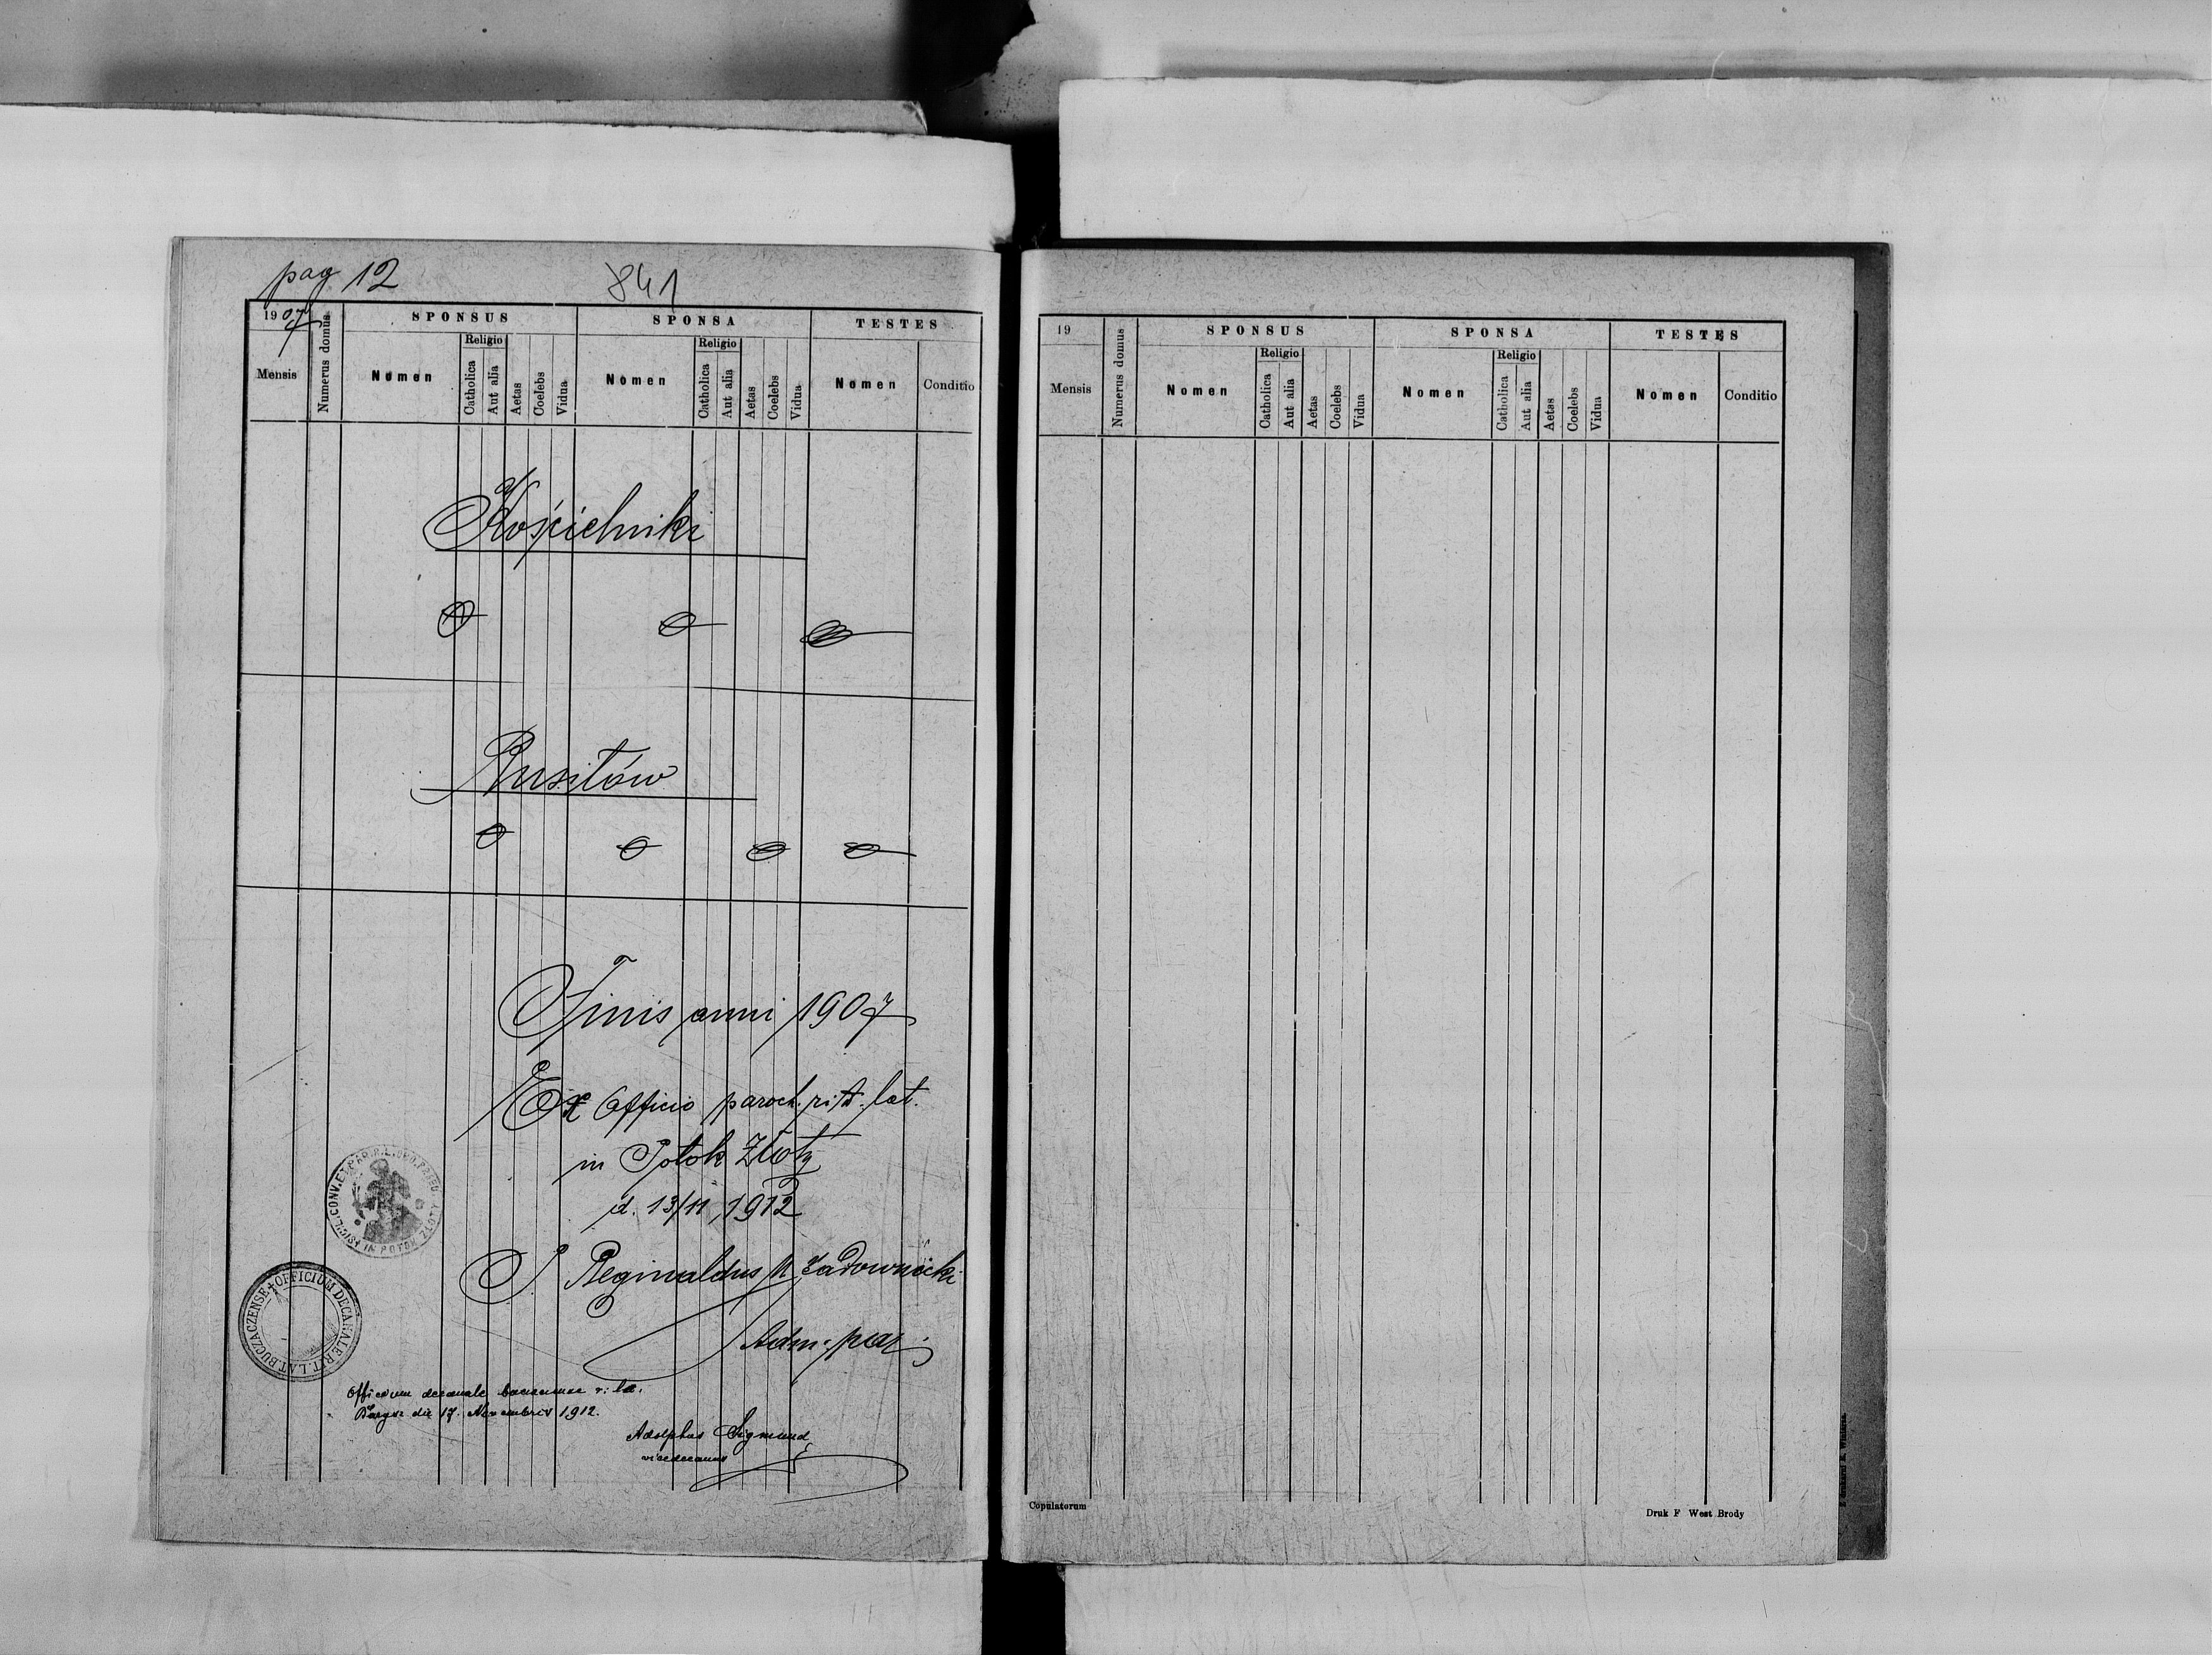 pag 12
841
1907
SPONSUS
SPONSA
TESTES
Mensis
Numerus domus
Nomen
Religio
Catholica
Aut alia
Aetas
Coelebs
Vidua
Nomen
Religio
Catholica
Aut alia
Aetas
Coelebs
Vidua
Nomen
Conditio
Kościelniki
Rusiłów
Finis anni 1907
Ex Officio paroch. rit. lat.
in Potok Złoty
d. 13/11 1912
Reginaldus
Adm. par.
IN POTOK
OFFICIUM DECANALE RIT. LAT. BUCZACZENSE
Officium decanale r: la.
die 17. Novembris 1912.
Adolphus Sigmund
vicedecanus
19
SPONSUS
SPONSA
TESTES
Mensis
Numerus domus
Nomen
Religio
Catholica
Aut alia
Aetas
Coelebs
Vidua
Nomen
Religio
Catholica
Aut alia
Aetas
Coelebs
Vidua
Nomen
Conditio
Copulatorum
Druk F West Brody